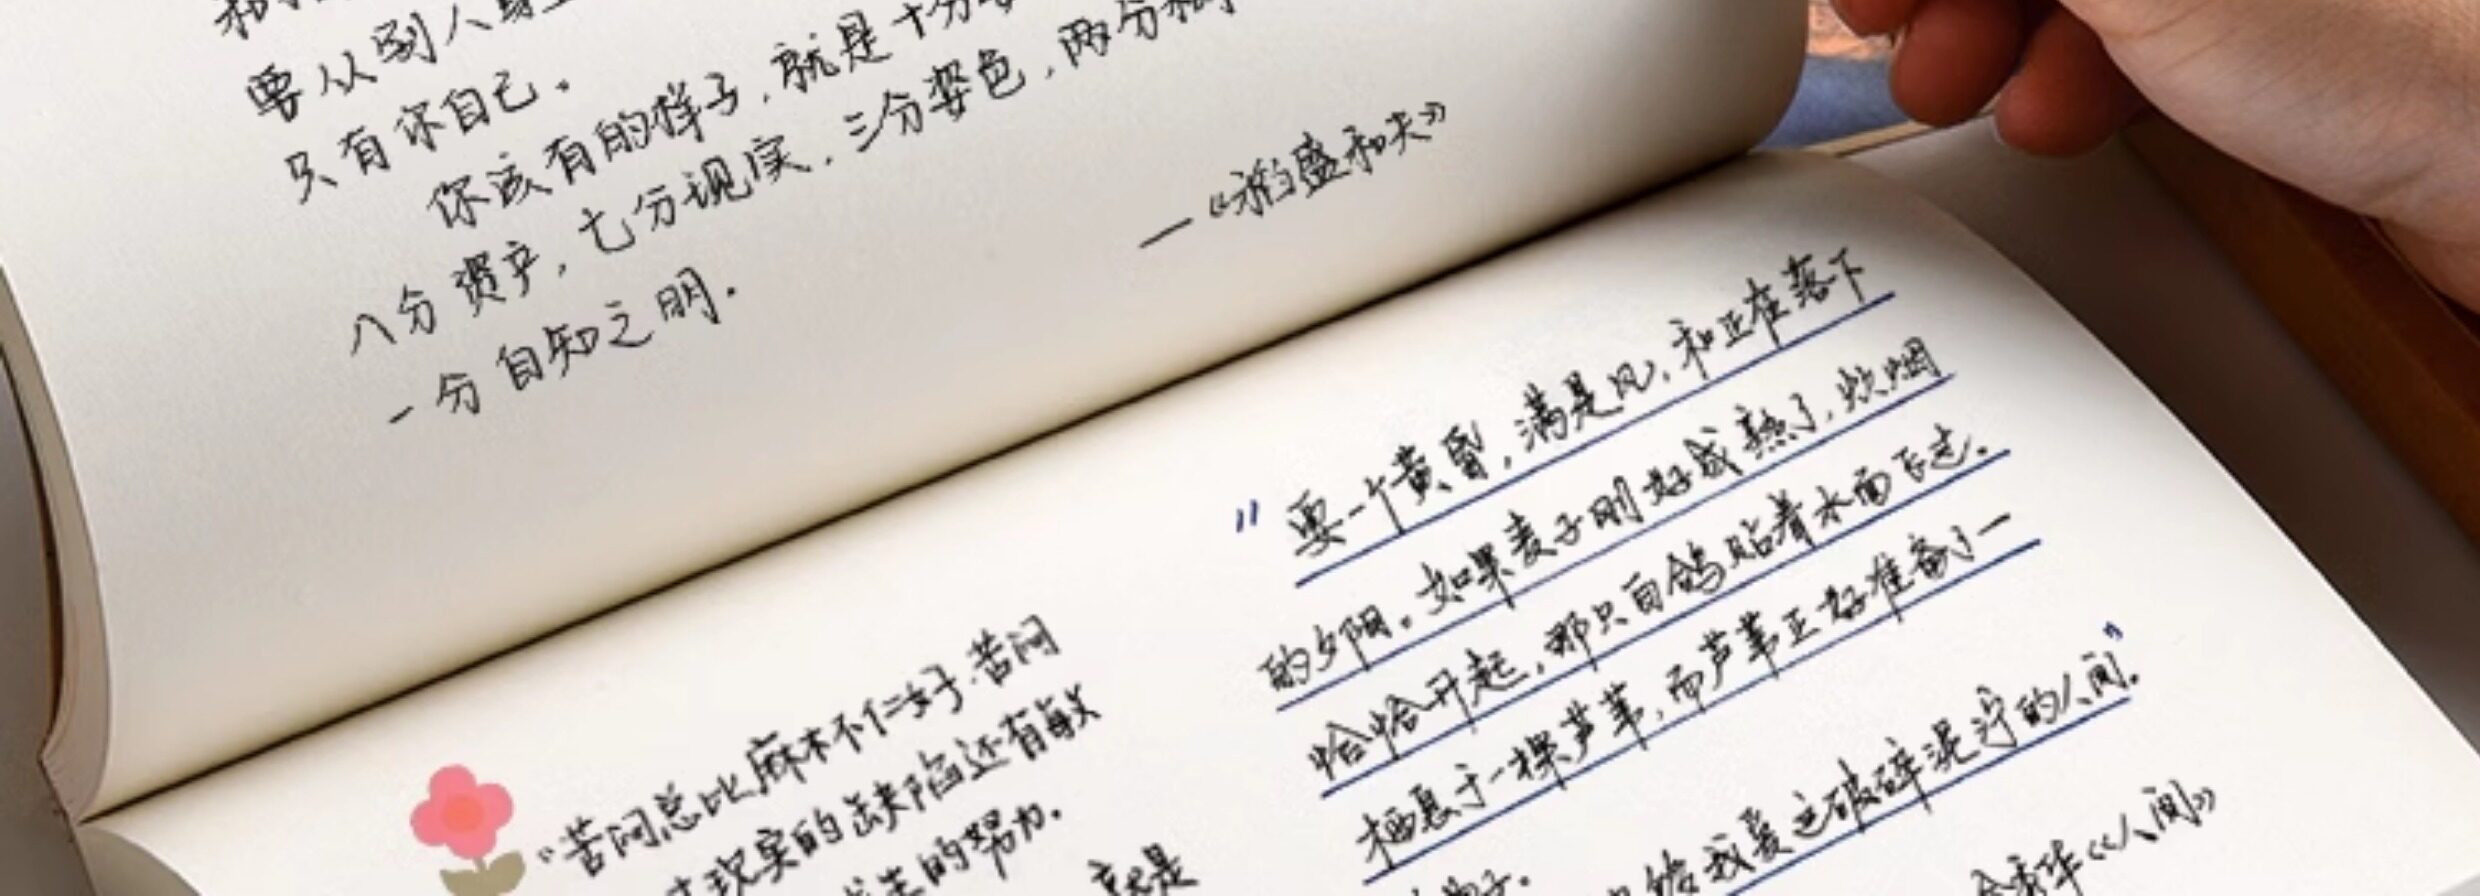 要从别人身上
只有你自己。
你该有的样子,就是十分
八分资产,七分现实,三分姿色,两分
一分自知之明.
—《稻盛和夫》
"要一个黄昏,满是风,和正在落下
的夕阳。如果麦子刚好成熟了,炊烟
恰恰升起,那只白鸽贴着水面飞过。
栖息于一棵芦苇,而芦苇正好准备了一
给我爱这破碎泥泞的人间."
秀华《人间》
"苦闷总比麻木不仁好.苦闷
现实的缺陷还有敏
的努力.
就是